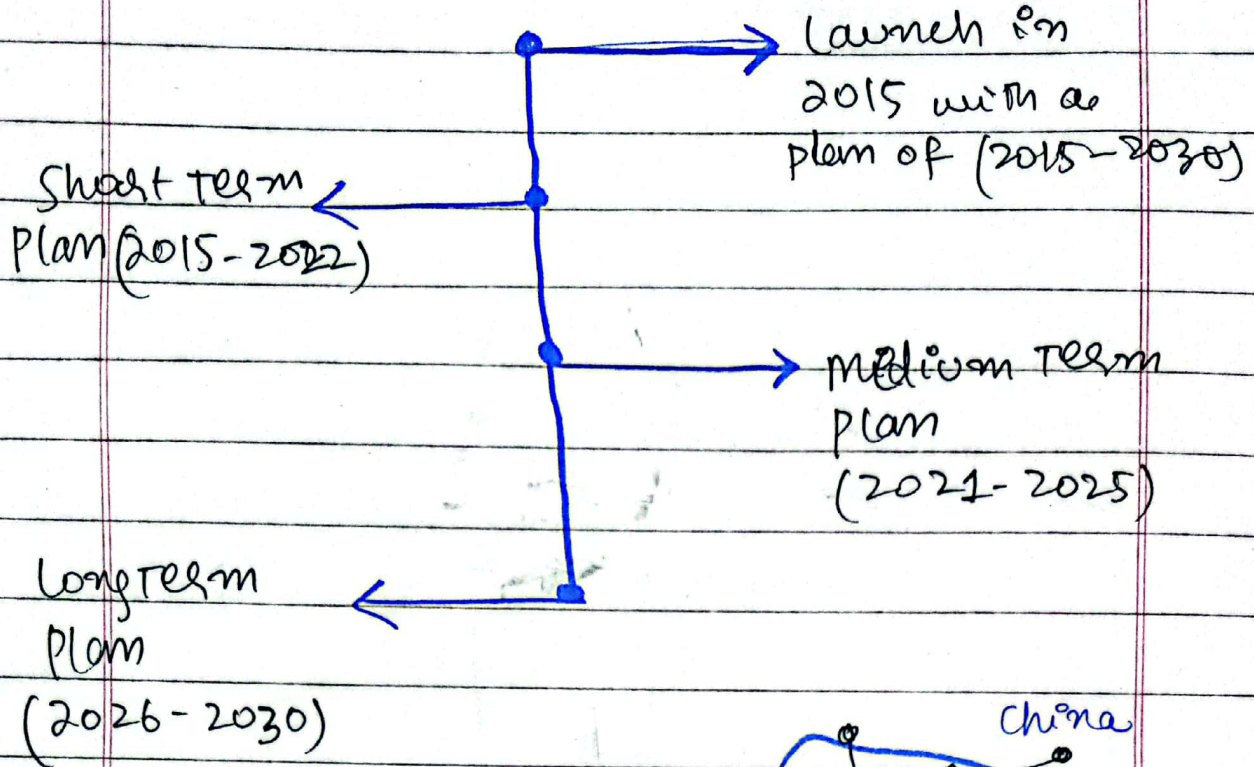 Launch in
2015 with a
plan of (2015-2030)
Short Term
Plan (2015-2022)
Medium Term
Plan
(2021-2025)
Long Term
Plan
(2026-2030)
China